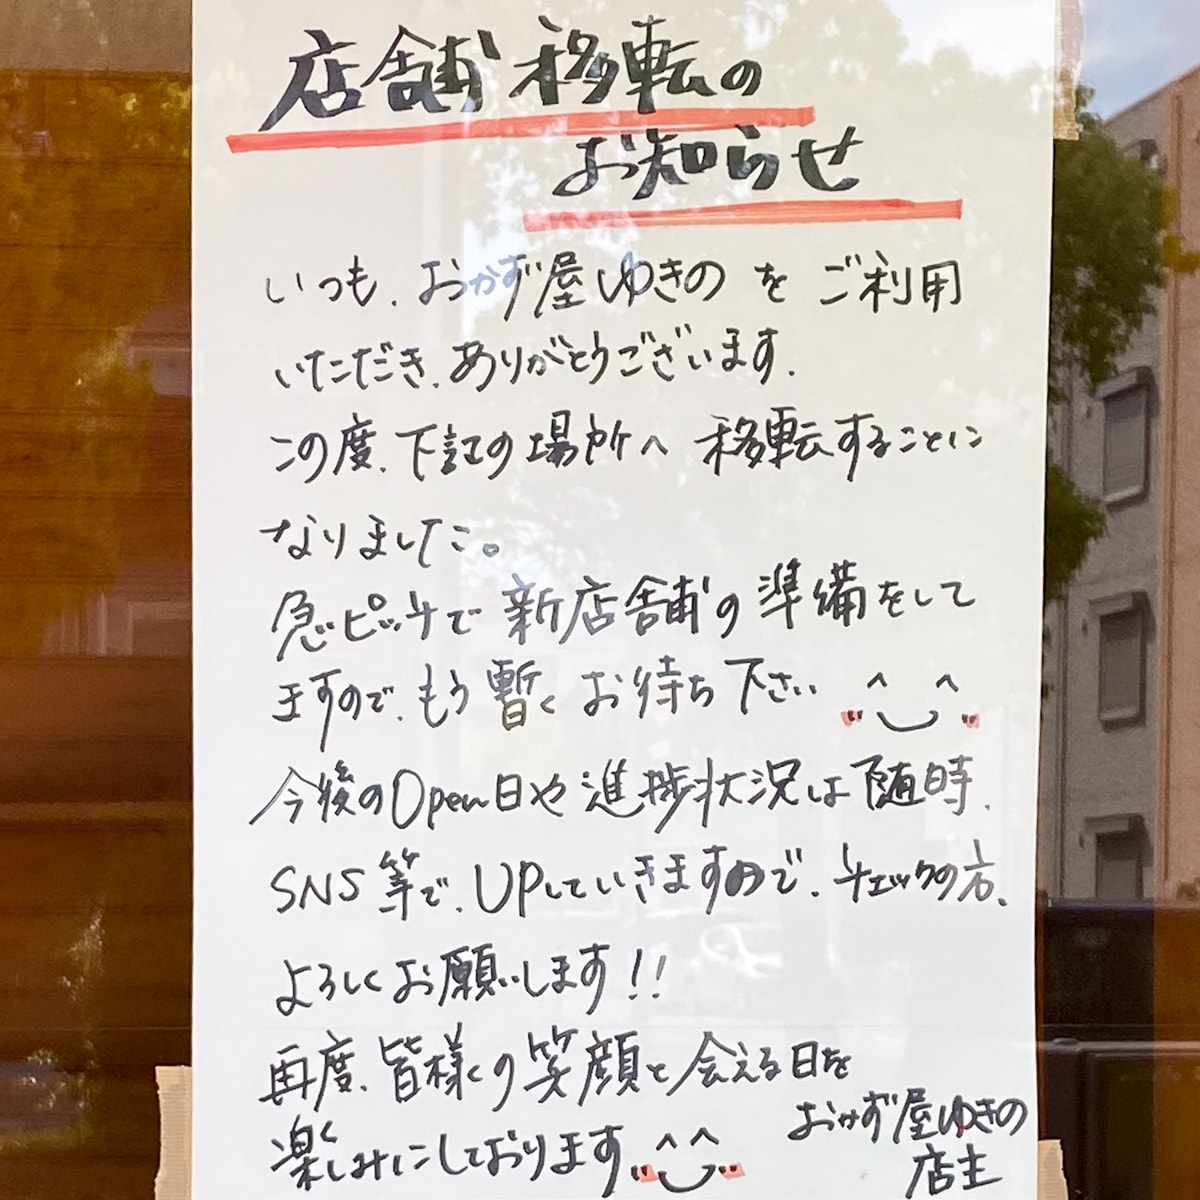 店舗移転の
お知らせ
いつも、おかず屋ゆきのをご利用
いただき、ありがとうございます。
この度、下記の場所へ移転することに
なりました。
急ピッチで新店舗の準備をして
ますので、もう暫くお待ち下さい
今後のOpen日や進捗状況は随時、
SNS等で、UPしていきますので、チェックの方、
よろしくお願いします!!
再度、皆様の笑顔と会える日を
楽しみにしております
おかず屋ゆきの
店主